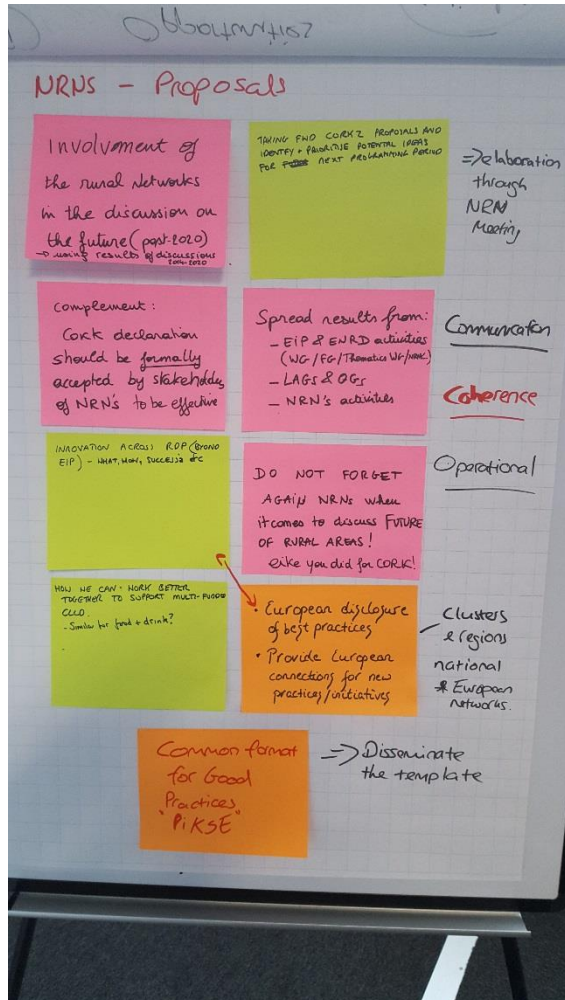 NRNS - Proposals
Involvement of
the rural Networks
in the discussion on
the future (post-2020)
→ using results of discussions
2014-2020
TAKING FWD CORK 2 PROPOSALS AND
IDENTIFY + PRIORITISE POTENTIAL IDEAS
FOR NEXT PROGRAMMING PERIOD
⇒ elaboration
through
NRN
Meeting
complement:
Cork declaration
should be formally
accepted by stakeholders
of NRN's to be effective
Spread results from:
- EIP & ENRD activities
(WG/FG/Thematics WG/
- LAGS & OGs
- NRN's activities
Communication
Coherence
Operational
INNOVATION ACROSS RDP (BEYOND
EIP) - WHAT, HOW, SUCCESS etc
DO NOT FORGET
AGAIN NRNs when
it comes to discuss FUTURE
OF RURAL AREAS!
like you did for CORK!
HOW WE CAN WORK BETTER
TOGETHER TO SUPPORT MULTI-FUNDED
CLLD.
- Similar for food + drink?
• European disclosure
of best practices
• Provide European
connections for new
practices/initiatives
Clusters
& regions
national
& European
networks.
Common format
for Good
Practices
"PiKSE"
⇒ Disseminate
the template